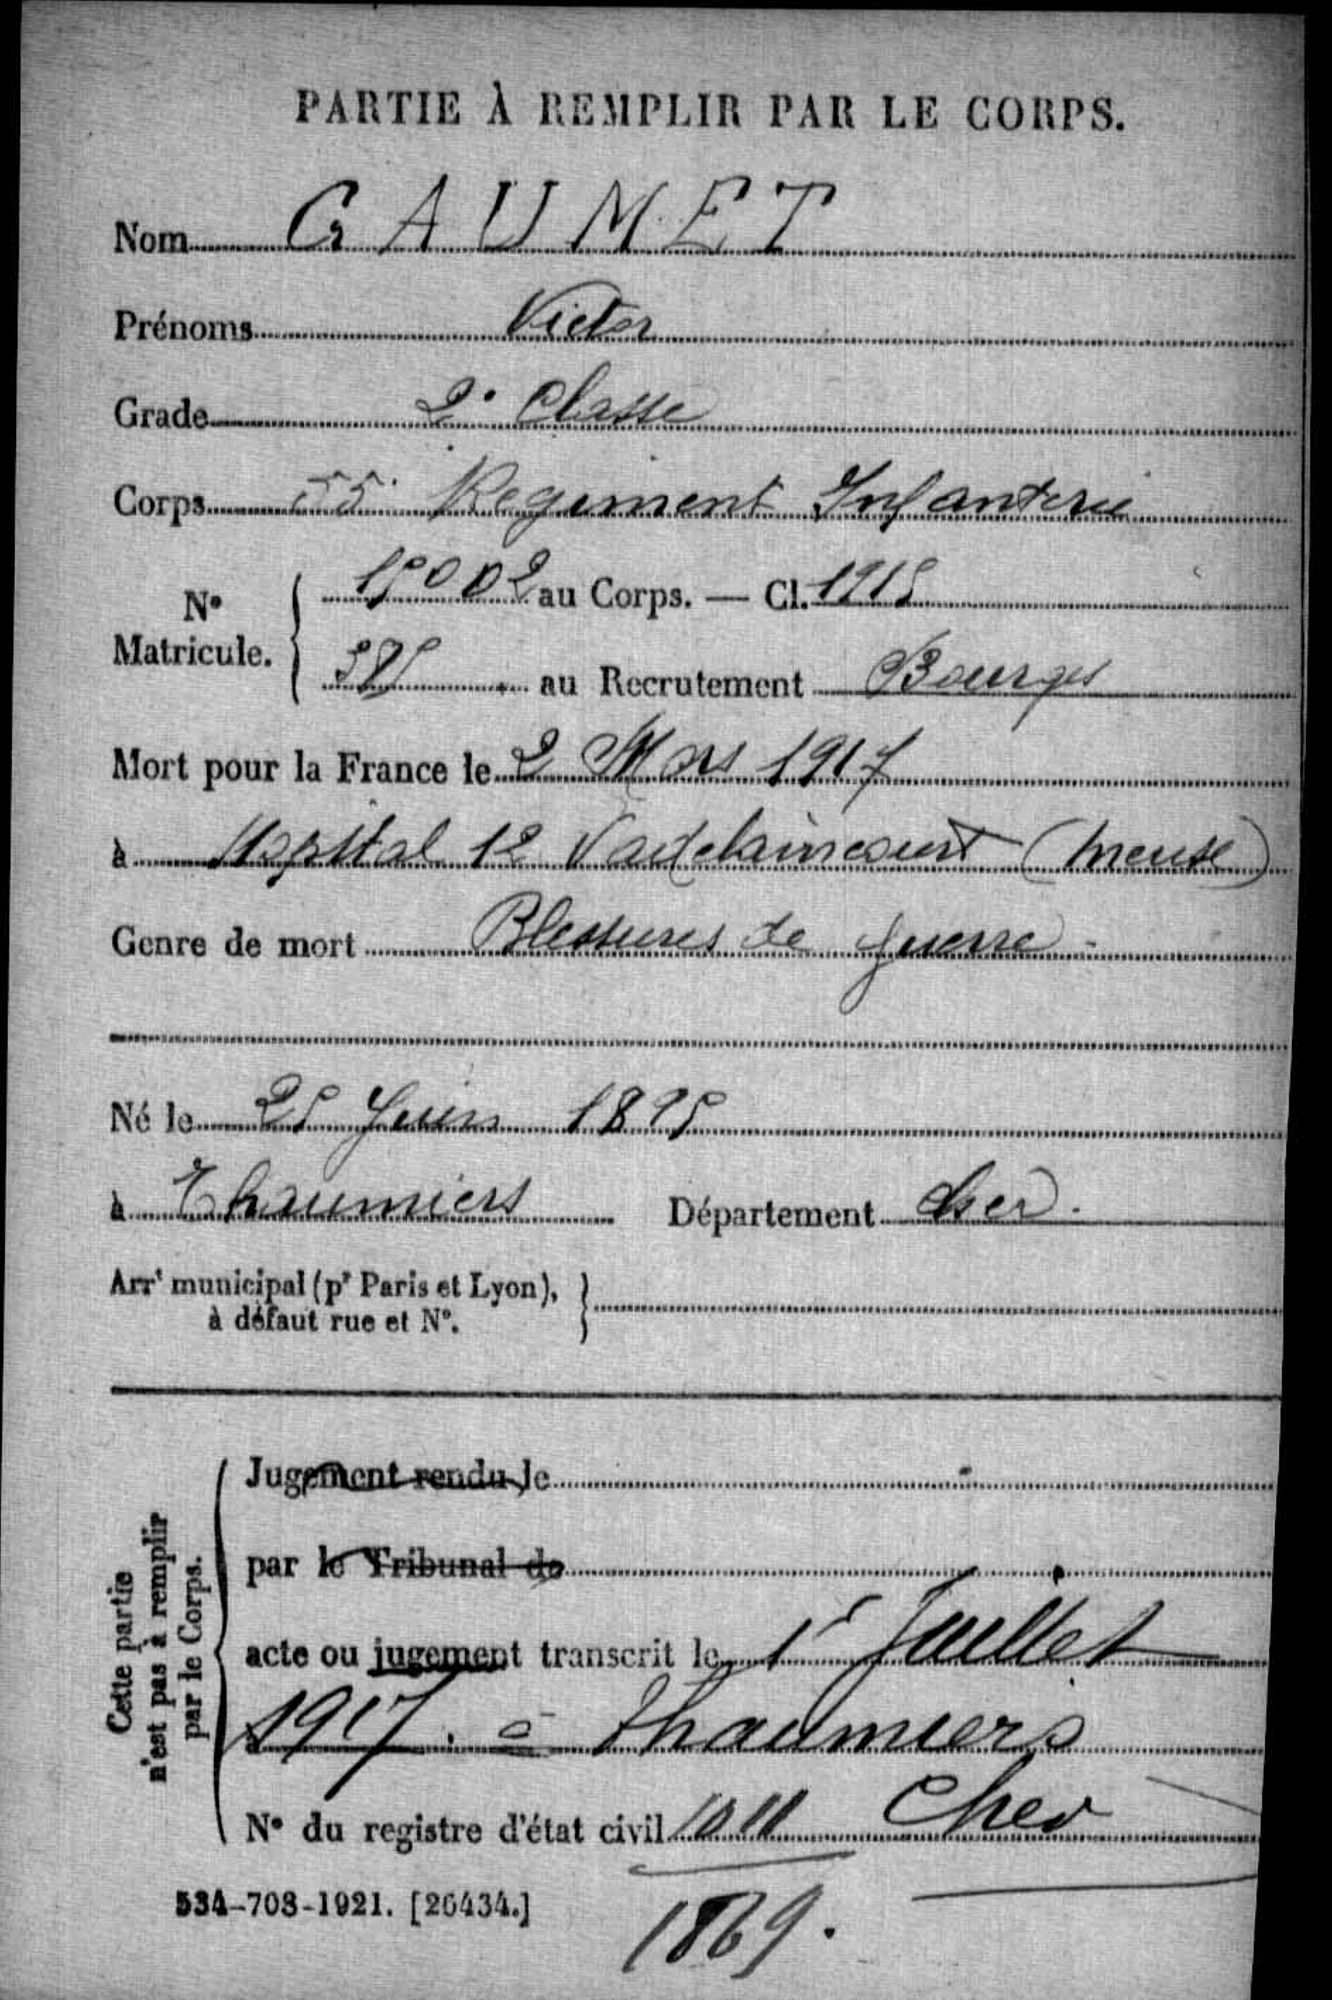 PARTIE À REMPLIR PAR LE CORPS.
Nom GAUMET
Prénoms Victor
Grade 2e Classe
Corps 55e Regiment Infanterie
No Matricule. { 15002 au Corps. — Cl. 1915
385 au Recrutement Bourges
Mort pour la France le 2 Mars 1917
à Hopital 12 Vadelaincourt (Meuse)
Genre de mort Blessures de guerre
Né le 25 Juin 1895
à Thaumiers Département Cher.
Arrt municipal (pr Paris et Lyon),
à défaut rue et No. }
Cette partie
n'est pas à remplir
par le Corps.
Jugement rendu le
par le Tribunal de
acte ou jugement transcrit le 1er Juillet
1917. à Thaumiers
No du registre d'état civil Cher
534-708-1921. [26434.]
1869.